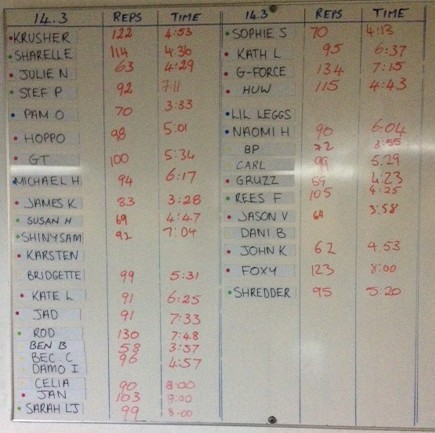 14.3 REPS TIME
KRUSHER 122 4:53
SHARELLE 114 4:36
JULIE N 63 4:29
STEF P 92 7:11
PAM O 70 3:33
HOPPO 98 5:01
GT 100 5:34
MICHAEL H 94 6:17
JAMES K 83 3:28
SUSAN H 69 4:47
SHINYSAM 92 7:04
KARSTEN
BRIDGETTE 99 5:31
KATE L 91 6:25
JAD 91 7:33
ROD 130 7:48
BEN B 58 3:37
BEC C 96 4:57
DAMO I
CELIA 90 8:00
JAN 103 8:00
SARAH LJ 99 8:00
14.3 REPS TIME
SOPHIE S 70 4:13
KATH L 95 6:37
G-FORCE 134 7:15
HUW 115 4:43
LIL LEGGS
NAOMI H 90 6:04
BP 72 3:55
CARL 99 5.29
GRUZZ 69 4:23
REES F 105 4:25
JASON V 3:58
DANI B
JOHN K 62 4.53
FOXY 123 8:00
SHREDDER 95 5:20